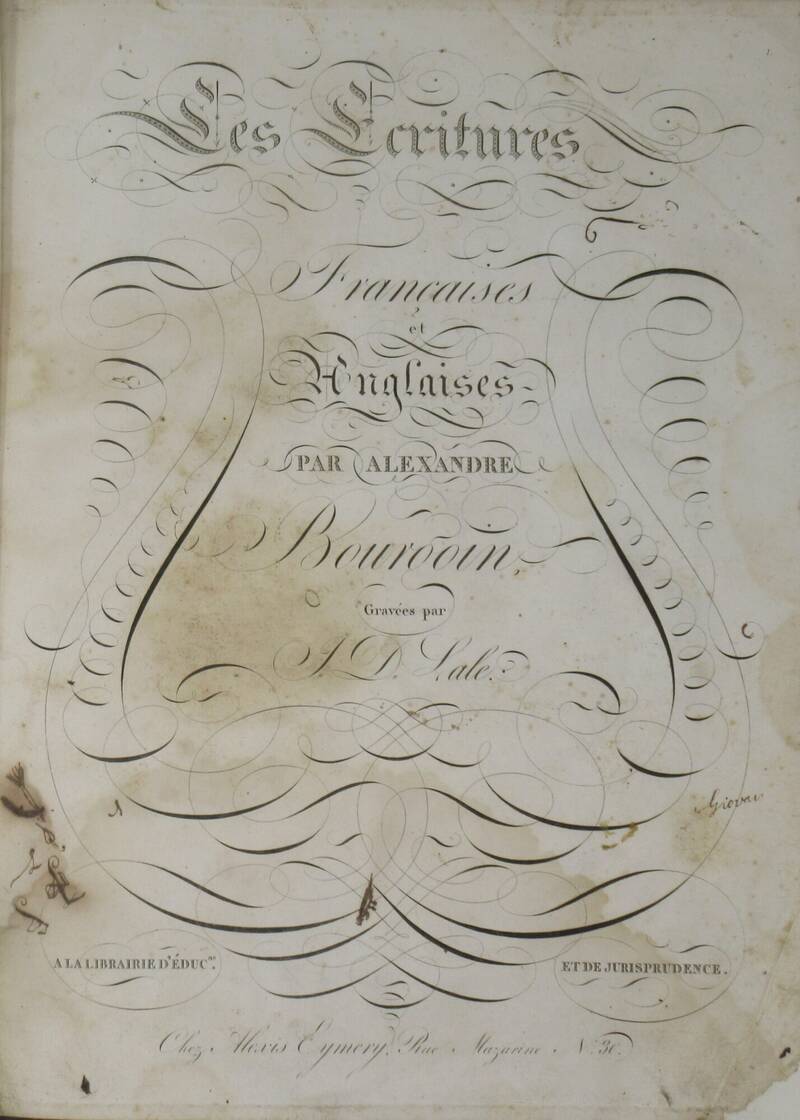 Les Ecritures
Françaises
et
Anglaises
PAR ALEXANDRE
Bourgoin,
Gravées par
J. D. Lale.
Giovan
A LA LIBRAIRIE D'ÉDUC.ᵒⁿ
ET DE JURISPRUDENCE.
Chez Alexis Eymery, Rue Mazarine N.º 30.